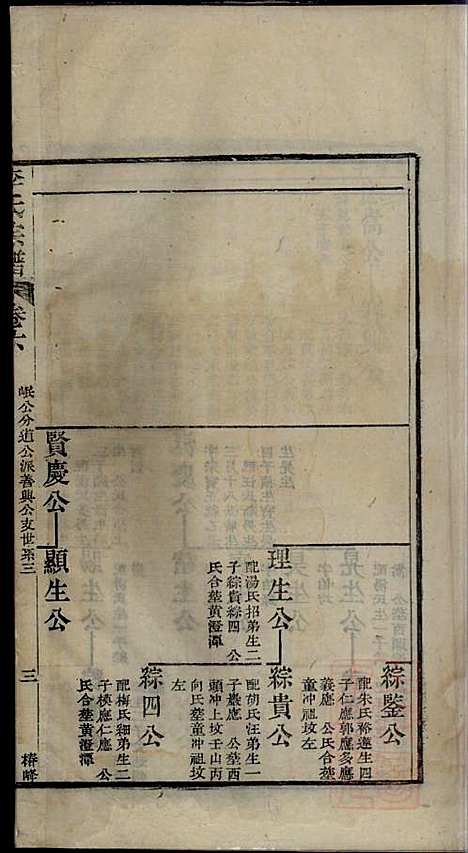 綜鑒公
配朱氏裕蓮生四
子仁應郭應多應
義應 公氏合塟
童冲祖坟左
理生公
配湯氏招弟生二
子綜貴綜四 公
氏合塟黄澄潭
綜貴公
配胡氏汪弟生一
子嚴應 公塟西
頭冲上坟壬山丙
向氏塟童冲祖坟
左
綜四公
配梅氏糊弟生二
子模應仁應 公
氏合塟黄澄潭
賢慶公
顯生公
李氏宗譜
卷六
岷公分道公派善與公支世系三
三
椿畤